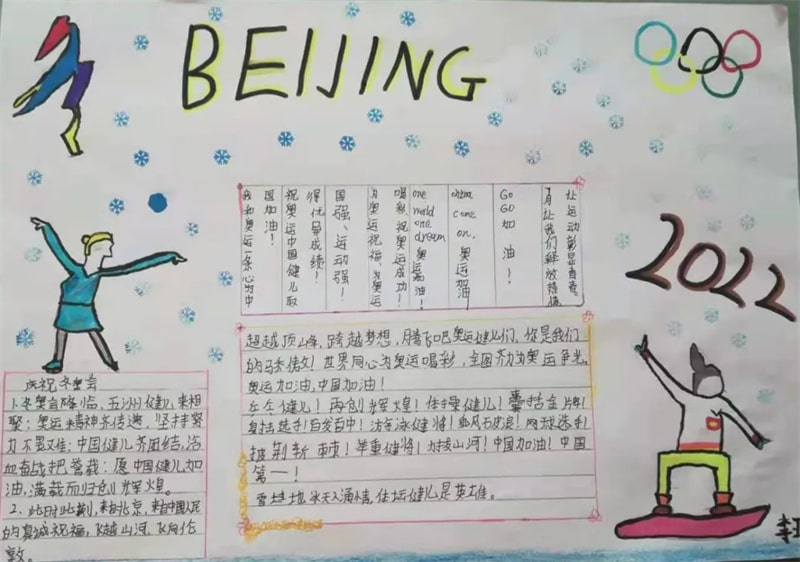 BEIJING
我和奥运一条心为中
国加油！
祝奥运中国健儿取
得优异成绩！
国强、运动强！
为奥运祝福、为奥运
喝彩祝奥运成功！
one world one dream 奥运加油！
china come on, 奥运加油！
GO GO 加油！
让我们释放热情
让运动彰显青春。
2022
超越顶峰,跨越梦想,腾飞吧奥运健儿们,你是我们
的骄傲！世界同心为奥运喝彩,全国齐力为奥运争光。
奥运加油,中国加油！
健儿！再创辉煌！体操健儿！囊括金牌！
射击选手！百发百中！游泳健将！乘风破浪！网球选手！
披荆斩棘！举重健将！力拔山河！中国加油！中国
第一！
雪地冰天涌情,体坛健儿是英雄。
庆祝冬奥会
1.冬奥会降临,五洲健儿来相
聚；奥运精神齐传递,坚持努
力不畏艰难；中国健儿齐团结,浴
血奋战把誉载；愿中国健儿加
油,满载而归创辉煌。
2.此时此刻,来自北京,来自中国人民
的真诚祝福,飞越山河,飞向伦
敦。